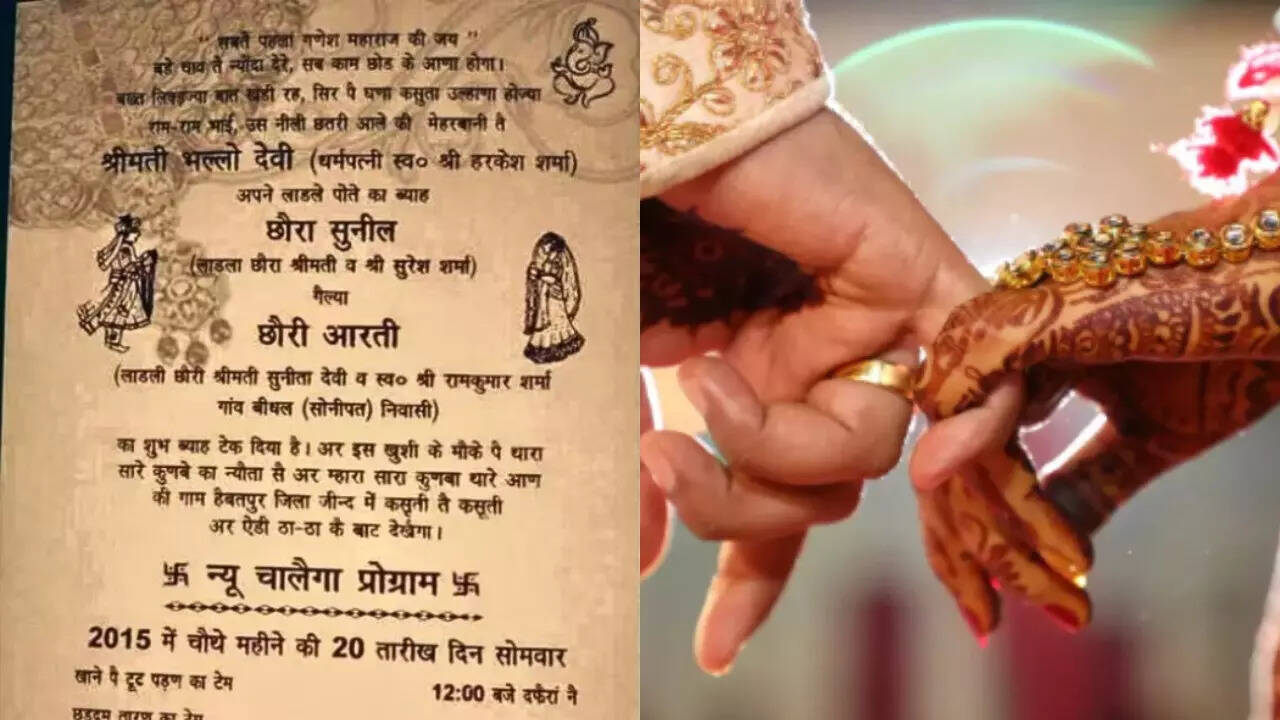 " सबतें पहलां गणेश महाराज की जय "
बडे चाव तै न्यौंदा देरे, सब काम छोड के आणा होगा।
बात खडी रह, सिर पै घणा कसुता उल्हाणा होज्या
राम-राम भाई, उस नीली छतरी आले की मेहरबानी तै
श्रीमती भल्लो देवी (धर्मपत्नी स्व० श्री हरकेश शर्मा)
अपने लाडले पोते का ब्याह
छौरा सुनील
(लाडला छौरा श्रीमती व श्री सुरेश शर्मा)
गैल्या
छौरी आरती
(लाडली छौरी श्रीमती सुनीता देवी व स्व० श्री रामकुमार शर्मा
गांव बीधल (सोनीपत) निवासी)
का शुभ ब्याह टेक दिया है। अर इस खुशी के मौके पै थारा
सारे कुणबे का न्यौता सै अर म्हारा सारा कुणबा थारे आण
की गाम हैबतपुर जिला जीन्द में कसूती तै कसूती
अर ऐडी ठा-ठा कै बाट देखैगा।
卐 न्यू चालैगा प्रोग्राम 卐
2015 में चौथे महीने की 20 तारीख दिन सोमवार
खाने पै टूट पड़ण का टेम 12:00 बजे दफैरां नै